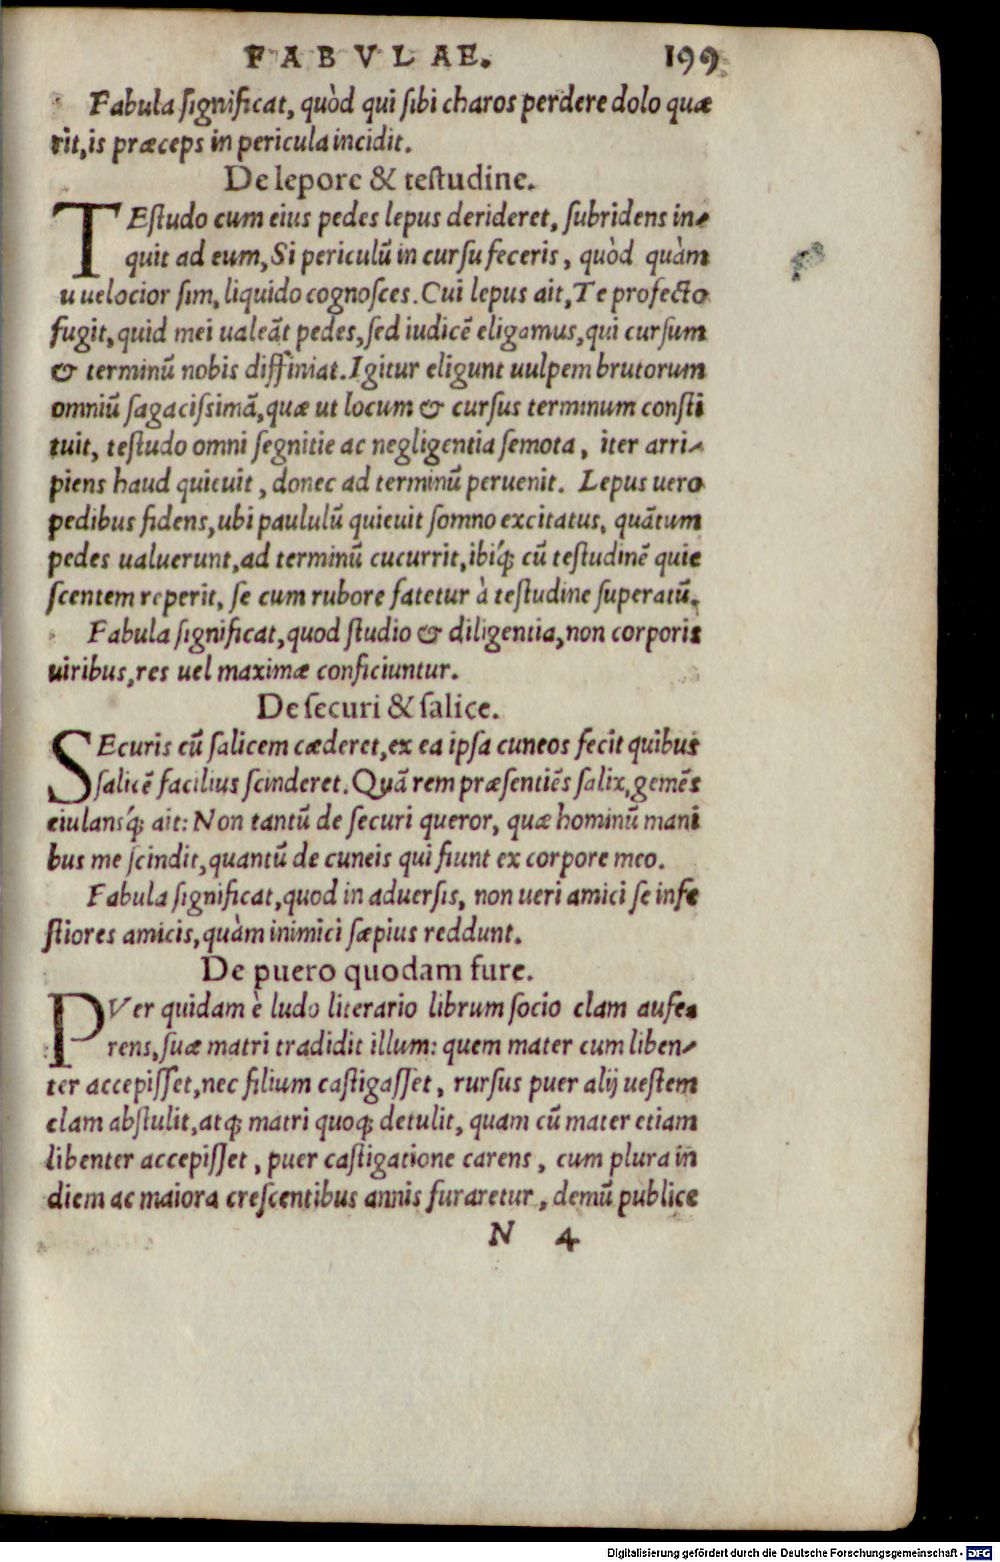 FABVLAE. 199
Fabula ſignificat, quòd qui ſibi charos perdere dolo quæ
rit, is præceps in pericula incidit.
De lepore & teſtudine.
TEſtudo cum eius pedes lepus derideret, ſubridens in-
quit ad eum, Si periculũ in curſu feceris, quòd quàm
u uelocior ſim, liquido cognoſces. Cui lepus ait, Te profecto
fugit, quid mei ualeãt pedes, ſed iudicẽ eligamus, qui curſum
& terminũ nobis diffiniat. Igitur eligunt uulpem brutorum
omniũ ſagaciſsimã, quæ ut locum & curſus terminum conſti
tuit, teſtudo omni ſegnitie ac negligentia ſemota, iter arri-
piens haud quieuit, donec ad terminũ peruenit. Lepus uero
pedibus fidens, ubi paululũ quieuit ſomno excitatus, quãtum
pedes ualuerunt, ad terminũ cucurrit, ibiq́; cũ teſtudinẽ quie
ſcentem reperit, ſe cum rubore fatetur à teſtudine ſuperatũ.
Fabula ſignificat, quod ſtudio & diligentia, non corporis
uiribus, res uel maximæ conficiuntur.
De ſecuri & ſalice.
SEcuris cũ ſalicem cæderet, ex ea ipſa cuneos fecit quibus
ſalicẽ facilius ſcinderet. Quã rem præſentiẽs ſalix, gemẽs
eiulansq́; ait: Non tantũ de ſecuri queror, quæ hominũ mani
bus me ſcindit, quantũ de cuneis qui fiunt ex corpore meo.
Fabula ſignificat, quod in aduerſis, non ueri amici ſe infe
ſtiores amicis, quàm inimici ſæpius reddunt.
De puero quodam fure.
PVer quidam è ludo literario librum ſocio clam aufe-
rens, ſuæ matri tradidit illum: quem mater cum liben-
ter accepiſſet, nec filium caſtigaſſet, rurſus puer alij ueſtem
clam abſtulit, atq; matri quoq; detulit, quam cũ mater etiam
libenter accepiſſet, puer caſtigatione carens, cum plura in
diem ac maiora creſcentibus annis furaretur, demũ publice
N 4
Digitalisierung gefördert durch die Deutsche Forschungsgemeinschaft - DFG